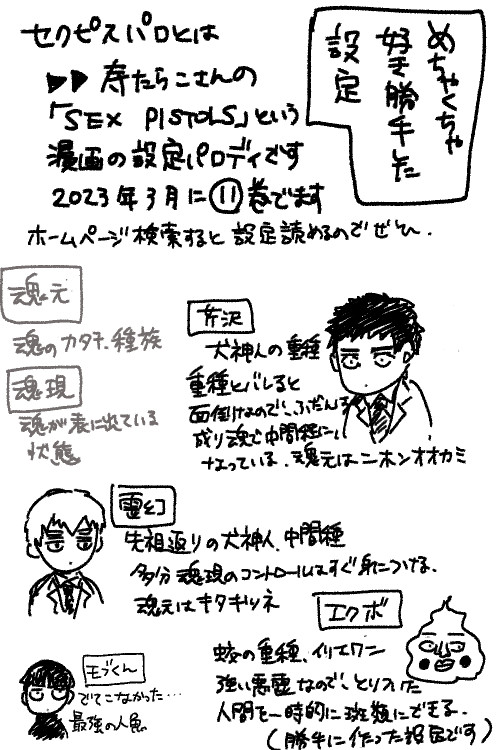 めちゃくちゃ
好き勝手した
設定
セクピスパロとは
▶▶ 寿たらこさんの
「SEX PISTOLS」という
漫画の設定パロディです
2023年3月に⑪巻でます
ホームページ検索すると設定読めるのでぜひ.
魂元
魂のカタチ、種族
魂現
魂が表に出ている
状態
芹沢
犬神人の重種
重種とバレると
面倒けなので、ふだんは
成り魂で中間種に
なっている、魂元はニホンオオカミ
霊幻
先祖返りの犬神人、中間種
多分魂現のコントロールはすぐ身につける.
魂元はキタキツネ
エクボ
蛟の重種、イリエワニ
強い悪霊なので、とりついた
人間を一時的に斑類にできる.
(勝手に作った設定です)
モブくん
でてこなかった…
最強の人魚